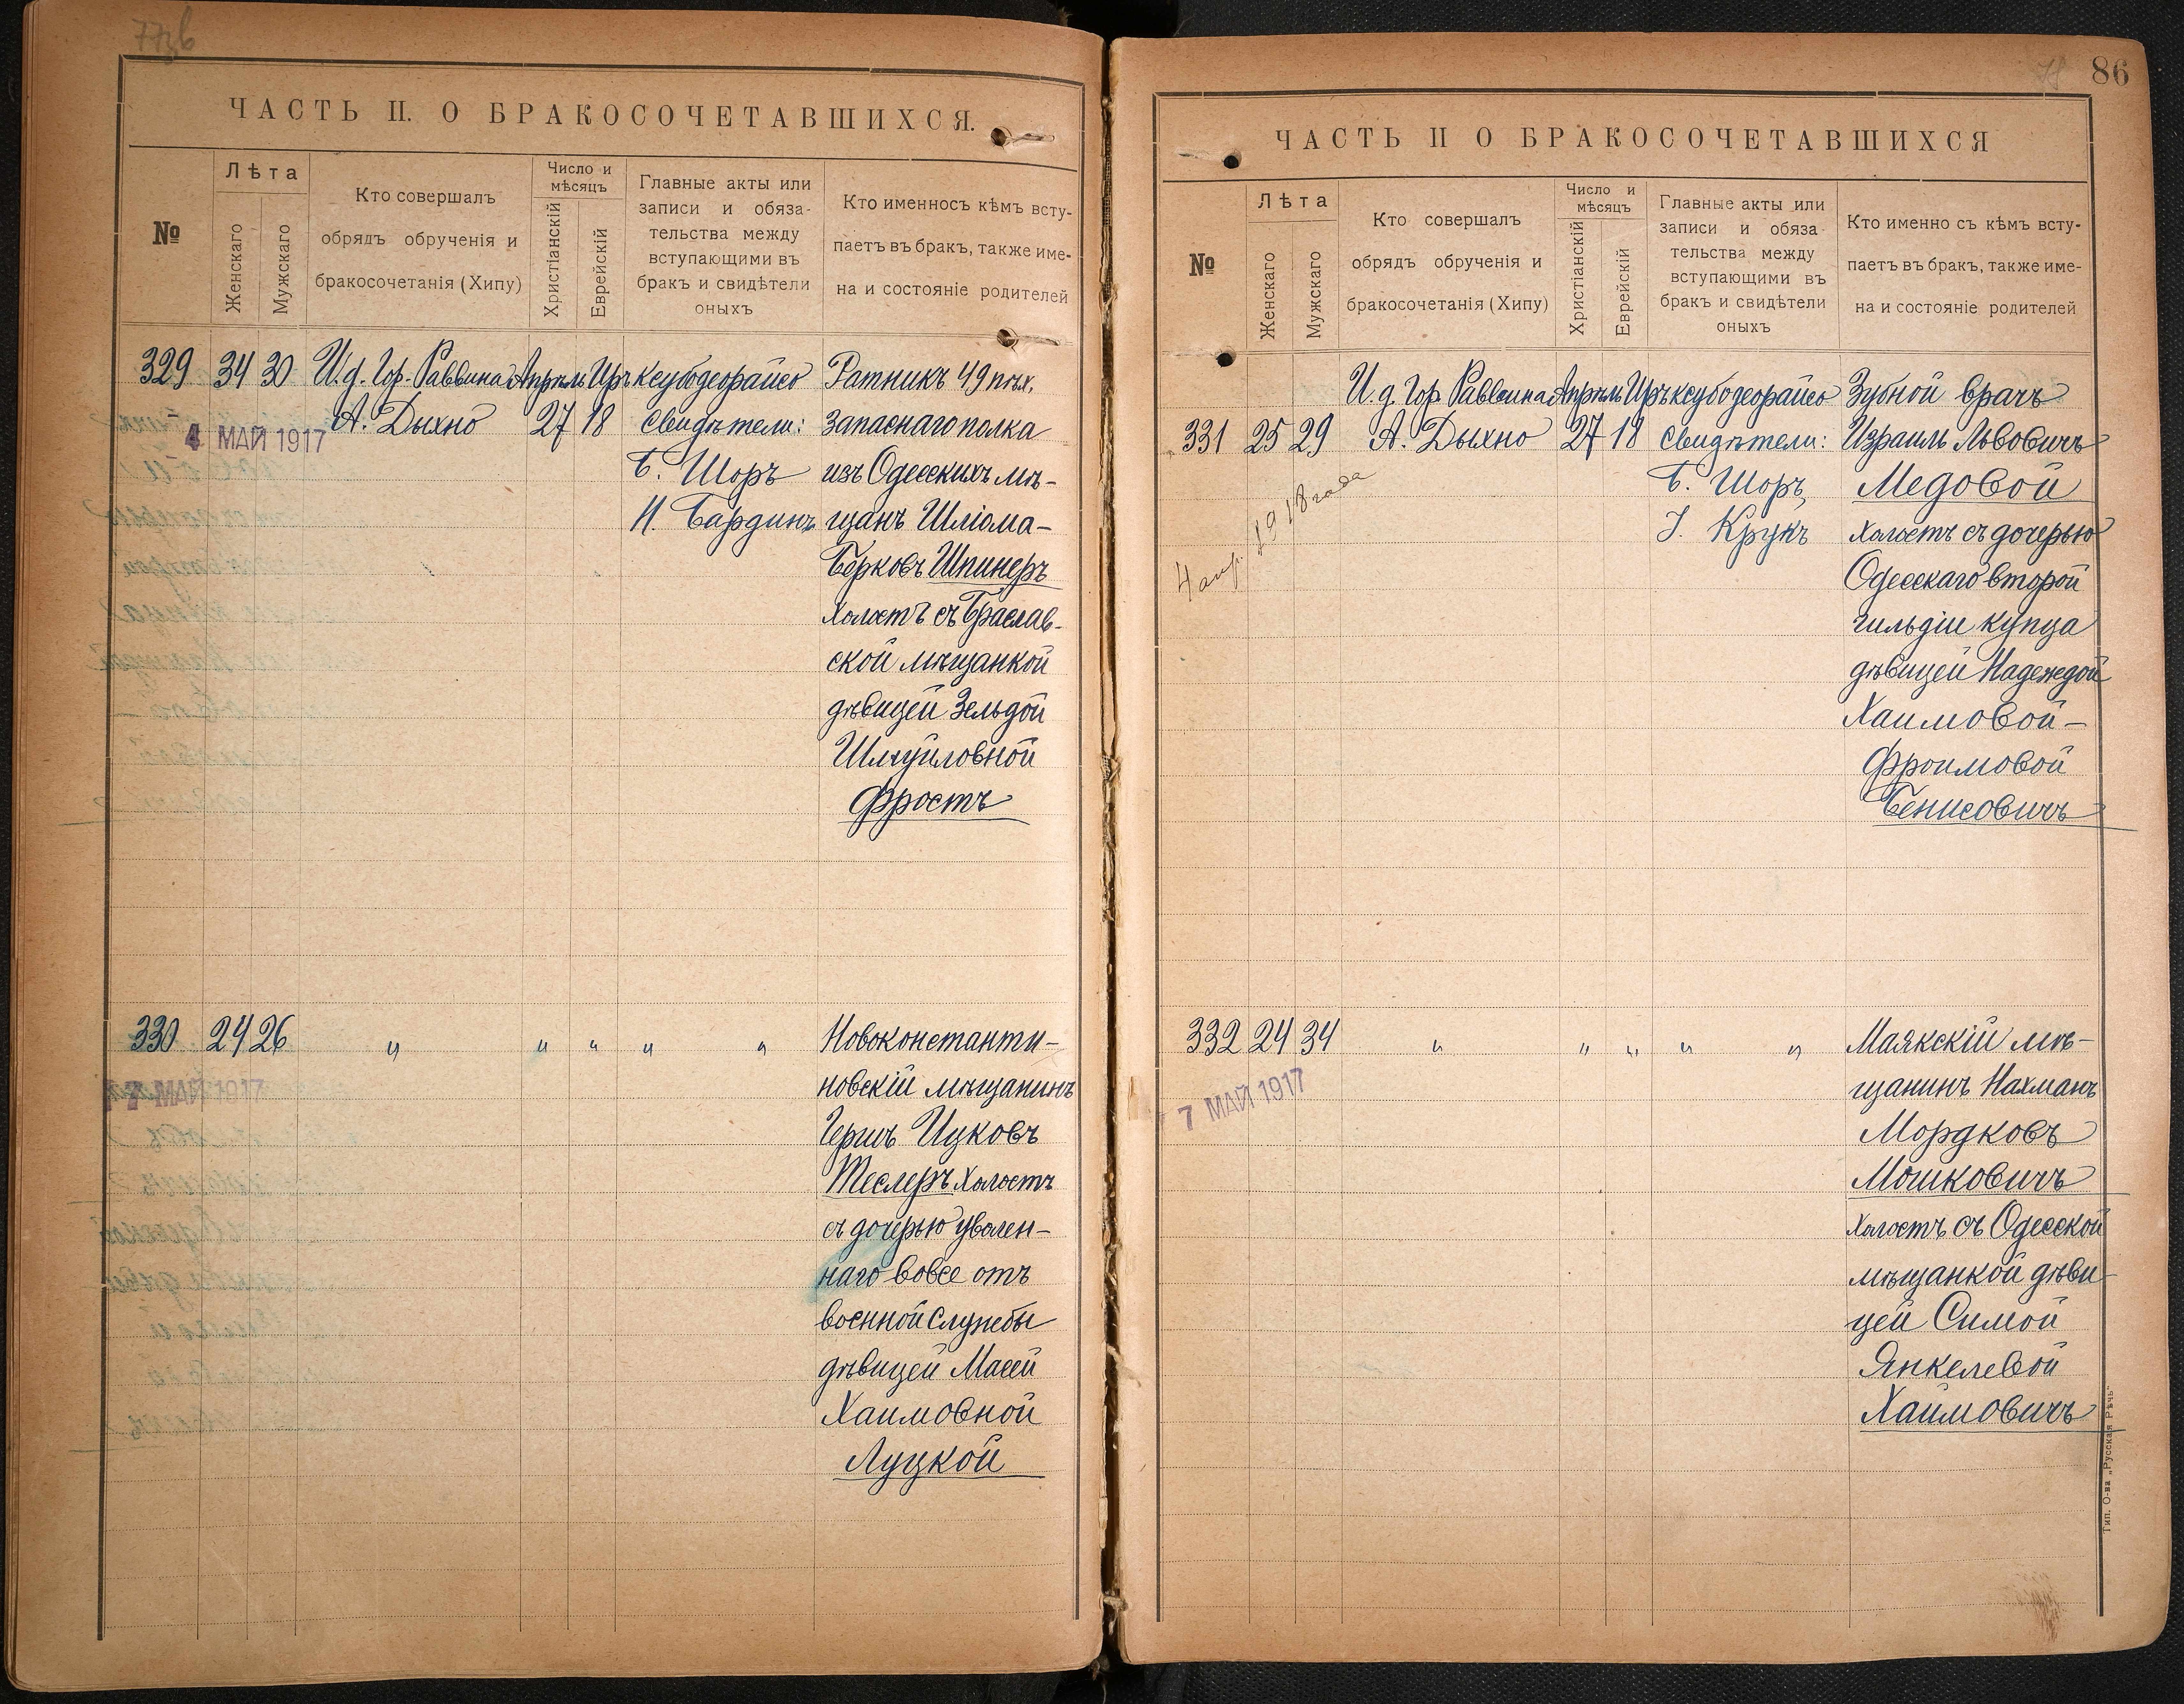 ЧАСТЬ II. О БРАКОСОЧЕТАВШИХСЯ.
№
Лѣта
Женскаго
Мужскаго
Кто совершалъ
обрядъ обрученія и
бракосочетанія (Хипу)
Число и
мѣсяцъ
Христіанскій
Еврейскій
Главные акты или
записи и обяза-
тельства между
вступающими въ
бракъ и свидѣтели
оныхъ
Кто именносъ кѣмъ всту-
паетъ въ бракъ, также име-
на и состояніе родителей
329 34 30 И.д. Гор. Раввина Апрѣль Иръ ксубодеорайсо Ратникъ 49 пѣх.
А. Дыхно 27 18 Свидѣтели: запаснаго полка
4 МАЙ 1917
Б. Шоръ изъ Одесскихъ мѣ-
И. Бардинъ щанъ Шліома-
Берковъ Шпинеръ
холостъ съ Браслав-
ской мѣщанкой
дѣвицей Зельдой
Шмуйловной
Фростъ
330 24 26 " " " " " Новоконстанти-
новскій мѣщанинъ
МАЙ 1917
Гершъ Ицковъ
Теслеръ холостъ
съ дочерью уволен-
наго вовсе отъ
военной службы
дѣвицей Масей
Хаимовной
Луцкой
86
ЧАСТЬ II О БРАКОСОЧЕТАВШИХСЯ
№
Лѣта
Женскаго
Мужскаго
Кто совершалъ
обрядъ обрученія и
бракосочетанія (Хипу)
Число и
мѣсяцъ
Христіанскій
Еврейскій
Главные акты или
записи и обяза
тельства между
вступающими въ
бракъ и свидѣтели
оныхъ
Кто именно съ кѣмъ всту-
паетъ въ бракъ, также име-
на и состояніе родителей
И.д. Гор. Раввина Апрѣль Иръ ксубодеорайсо Зубной врачъ
331 25 29 А. Дыхно 27 18 Свидѣтели: Израиль Львовичъ
Б. Шоръ, Медовой
І. Крукъ холостъ съ дочерью
4 апр. 1918 года
Одесскаго второй
гильдіи купца
дѣвицей Надеждой
Хаимовой-
Фроимовой
Бенисовичъ
332 24 34 " " " " " Маякскій мѣ-
щанинъ Нахманъ
7 МАЙ 1917
Мордковъ
Мошковичъ
холостъ съ Одесской
мѣщанкой дѣви-
цей Симой
Янкелевой
Хаимовичъ
Тип. О-ва „Русская Рѣчь"